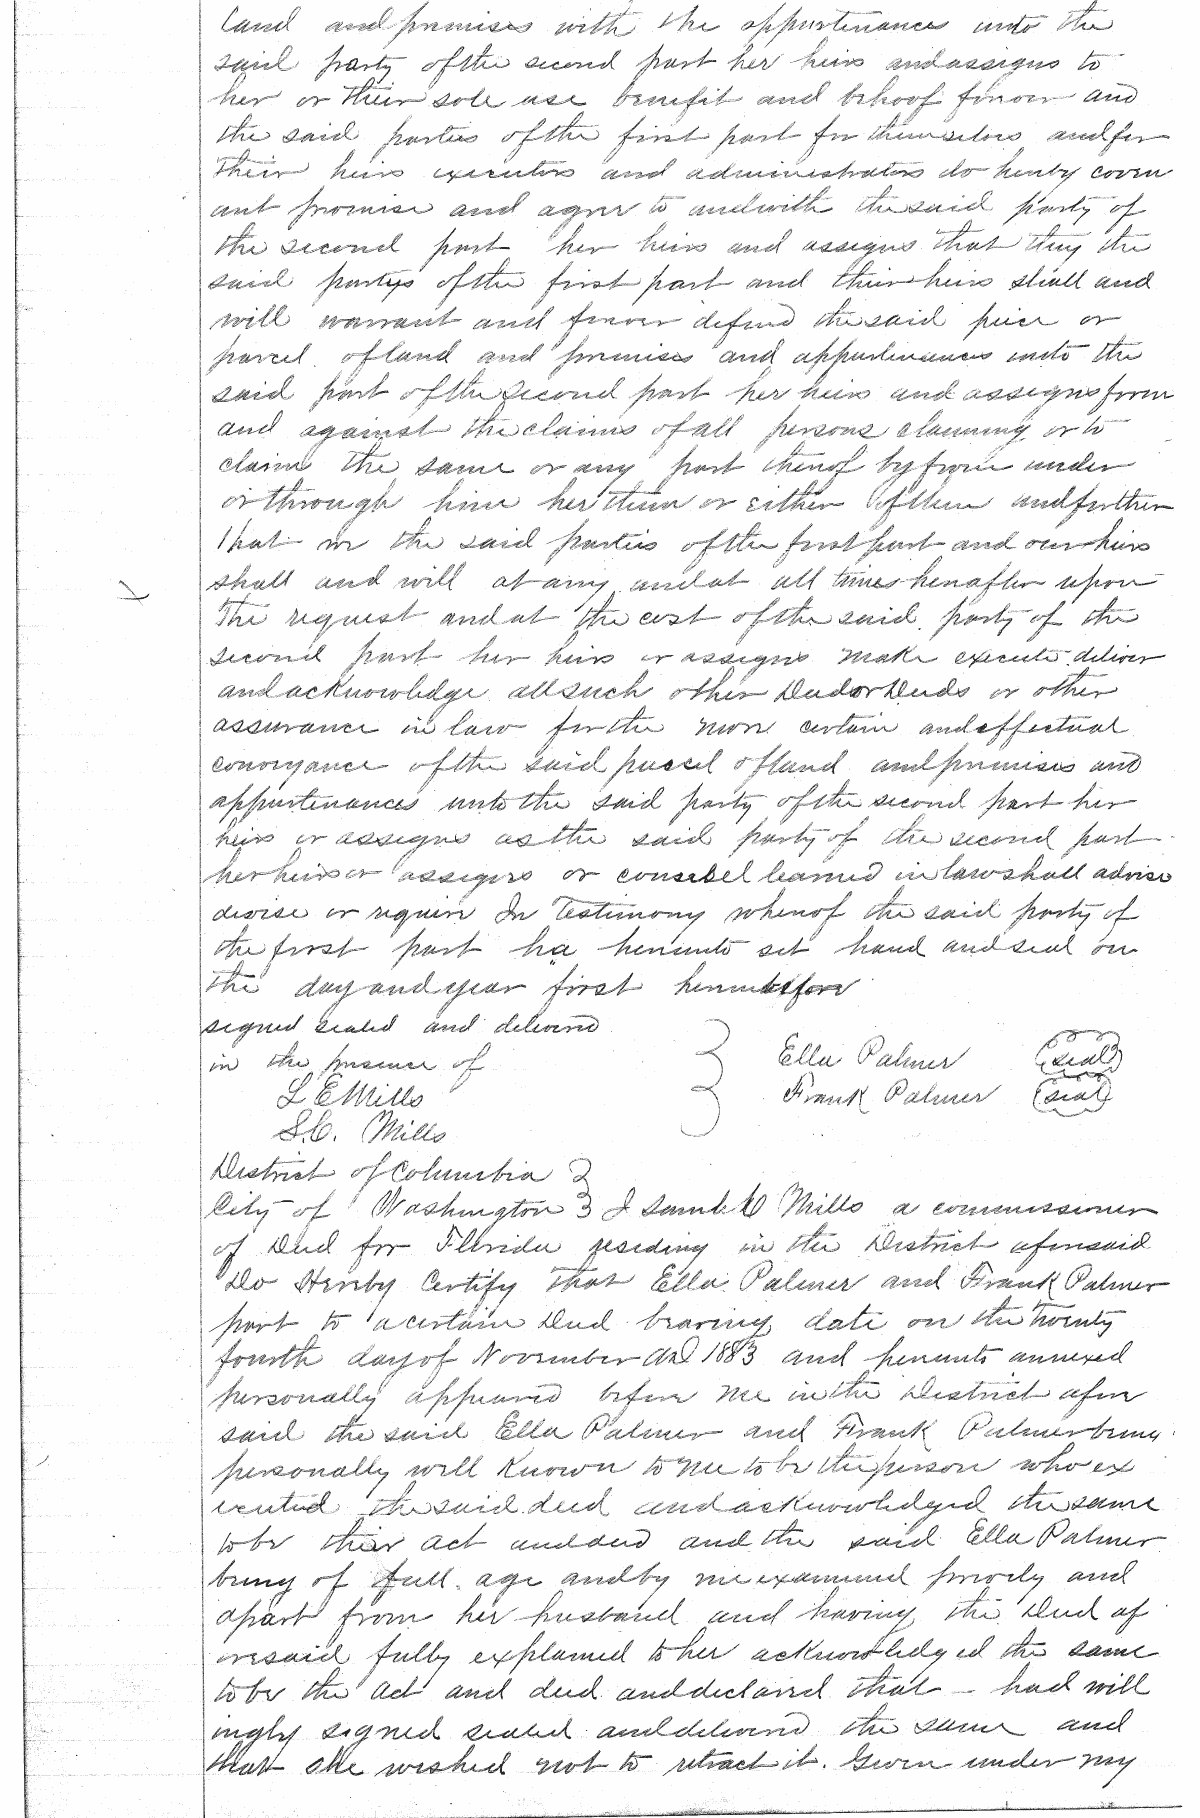 land and premises with the appurtenances unto the
said party of the second part her heirs and assigns to
her or their sole use benefit and behoof forever and
the said parties of the first part for themselves and for
Their heirs executors and administrators do hereby coven
ant promise and agree to and with the said party of
the second part her heirs and assigns that they the
said partys of the first part and their heirs shall and
will warrant and forever defend the said piece or
parcel of land and premises and appurtenances unto the
said part of the second part her heirs and assigns from
and against the claims of all persons claiming or to
claim the same or any part thereof by from under
or through him her them or either of them and further
That we the said parties of the first part and our heirs
shall and will at any and at all times hereafter upon
The request and at the cost of the said party of the
second part her heirs or assigns make execute deliver
and acknowledge all such other Deed or Deeds or other
assurance in law for the more certain and effectual
conveyance of the said parcel of land and premises and
appurtenances unto the said party of the second part her
heirs or assigns as the said party of the second part
her heirs or assigns or counsel learned in law shall advise
devise or require In Testimony whereof the said party of
the first part ha hereunto set hand and seal on
the day and year first hereinbefore
signed sealed and delivered
in the presence of
L E Mills
S.C. Mills
Ella Palmer (seal)
Frank Palmer (seal)
District of Columbia
City of Washington I Saml C Mills a commissioner
of Deed for Florida residing in the District aforesaid
Do Hereby Certify that Ella Palmer and Frank Palmer
part to a certain Deed bearing date on the twenty
fourth day of November AD 1883 and hereunto annexed
personally appeared before me in the District afore
said the said Ella Palmer and Frank Palmer being
personally well known to me to be the person who ex
ecuted the said deed and acknowledged the same
to be their act and deed and the said Ella Palmer
being of full age and by me examined privily and
apart from her husband and having the Deed af
oresaid fully explained to her acknowledged the same
to be the act and deed and declared that — had will
ingly signed sealed and delivered the same and
that she wished not to retract it. Given under my